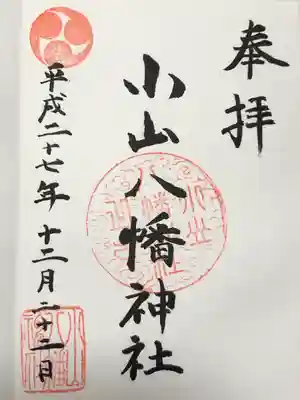 奉拝
小山八幡神社
平成二十七年 十二月二十二日